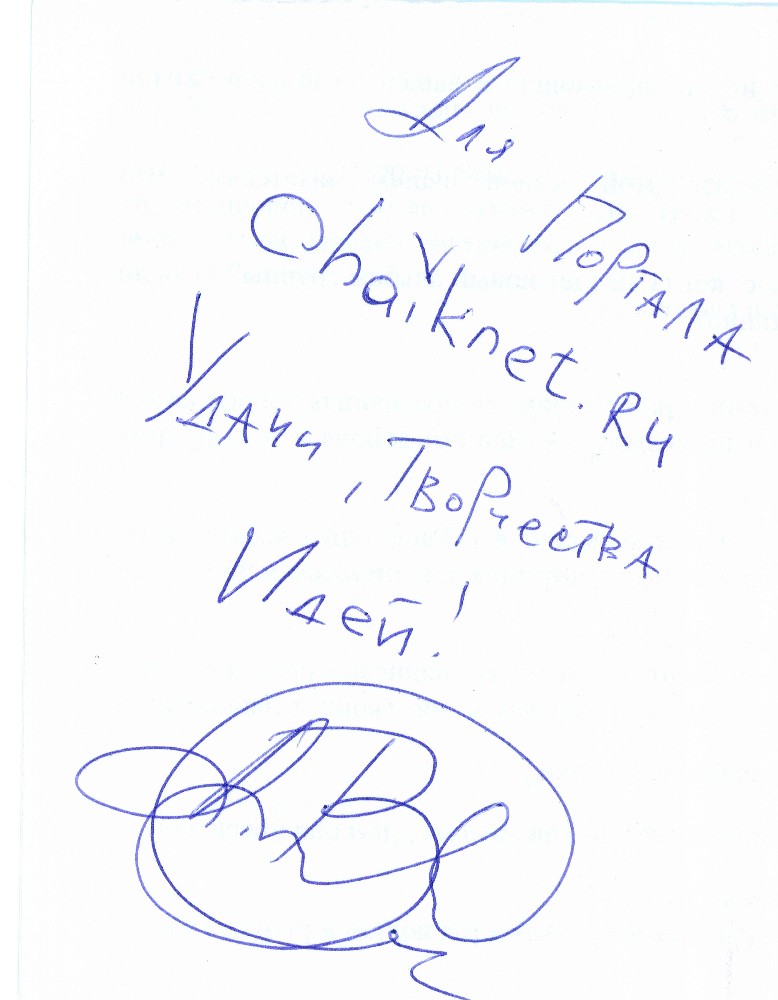 Для
Портала
Chaiknet.Ru
Удачи, Творчества
Идей!